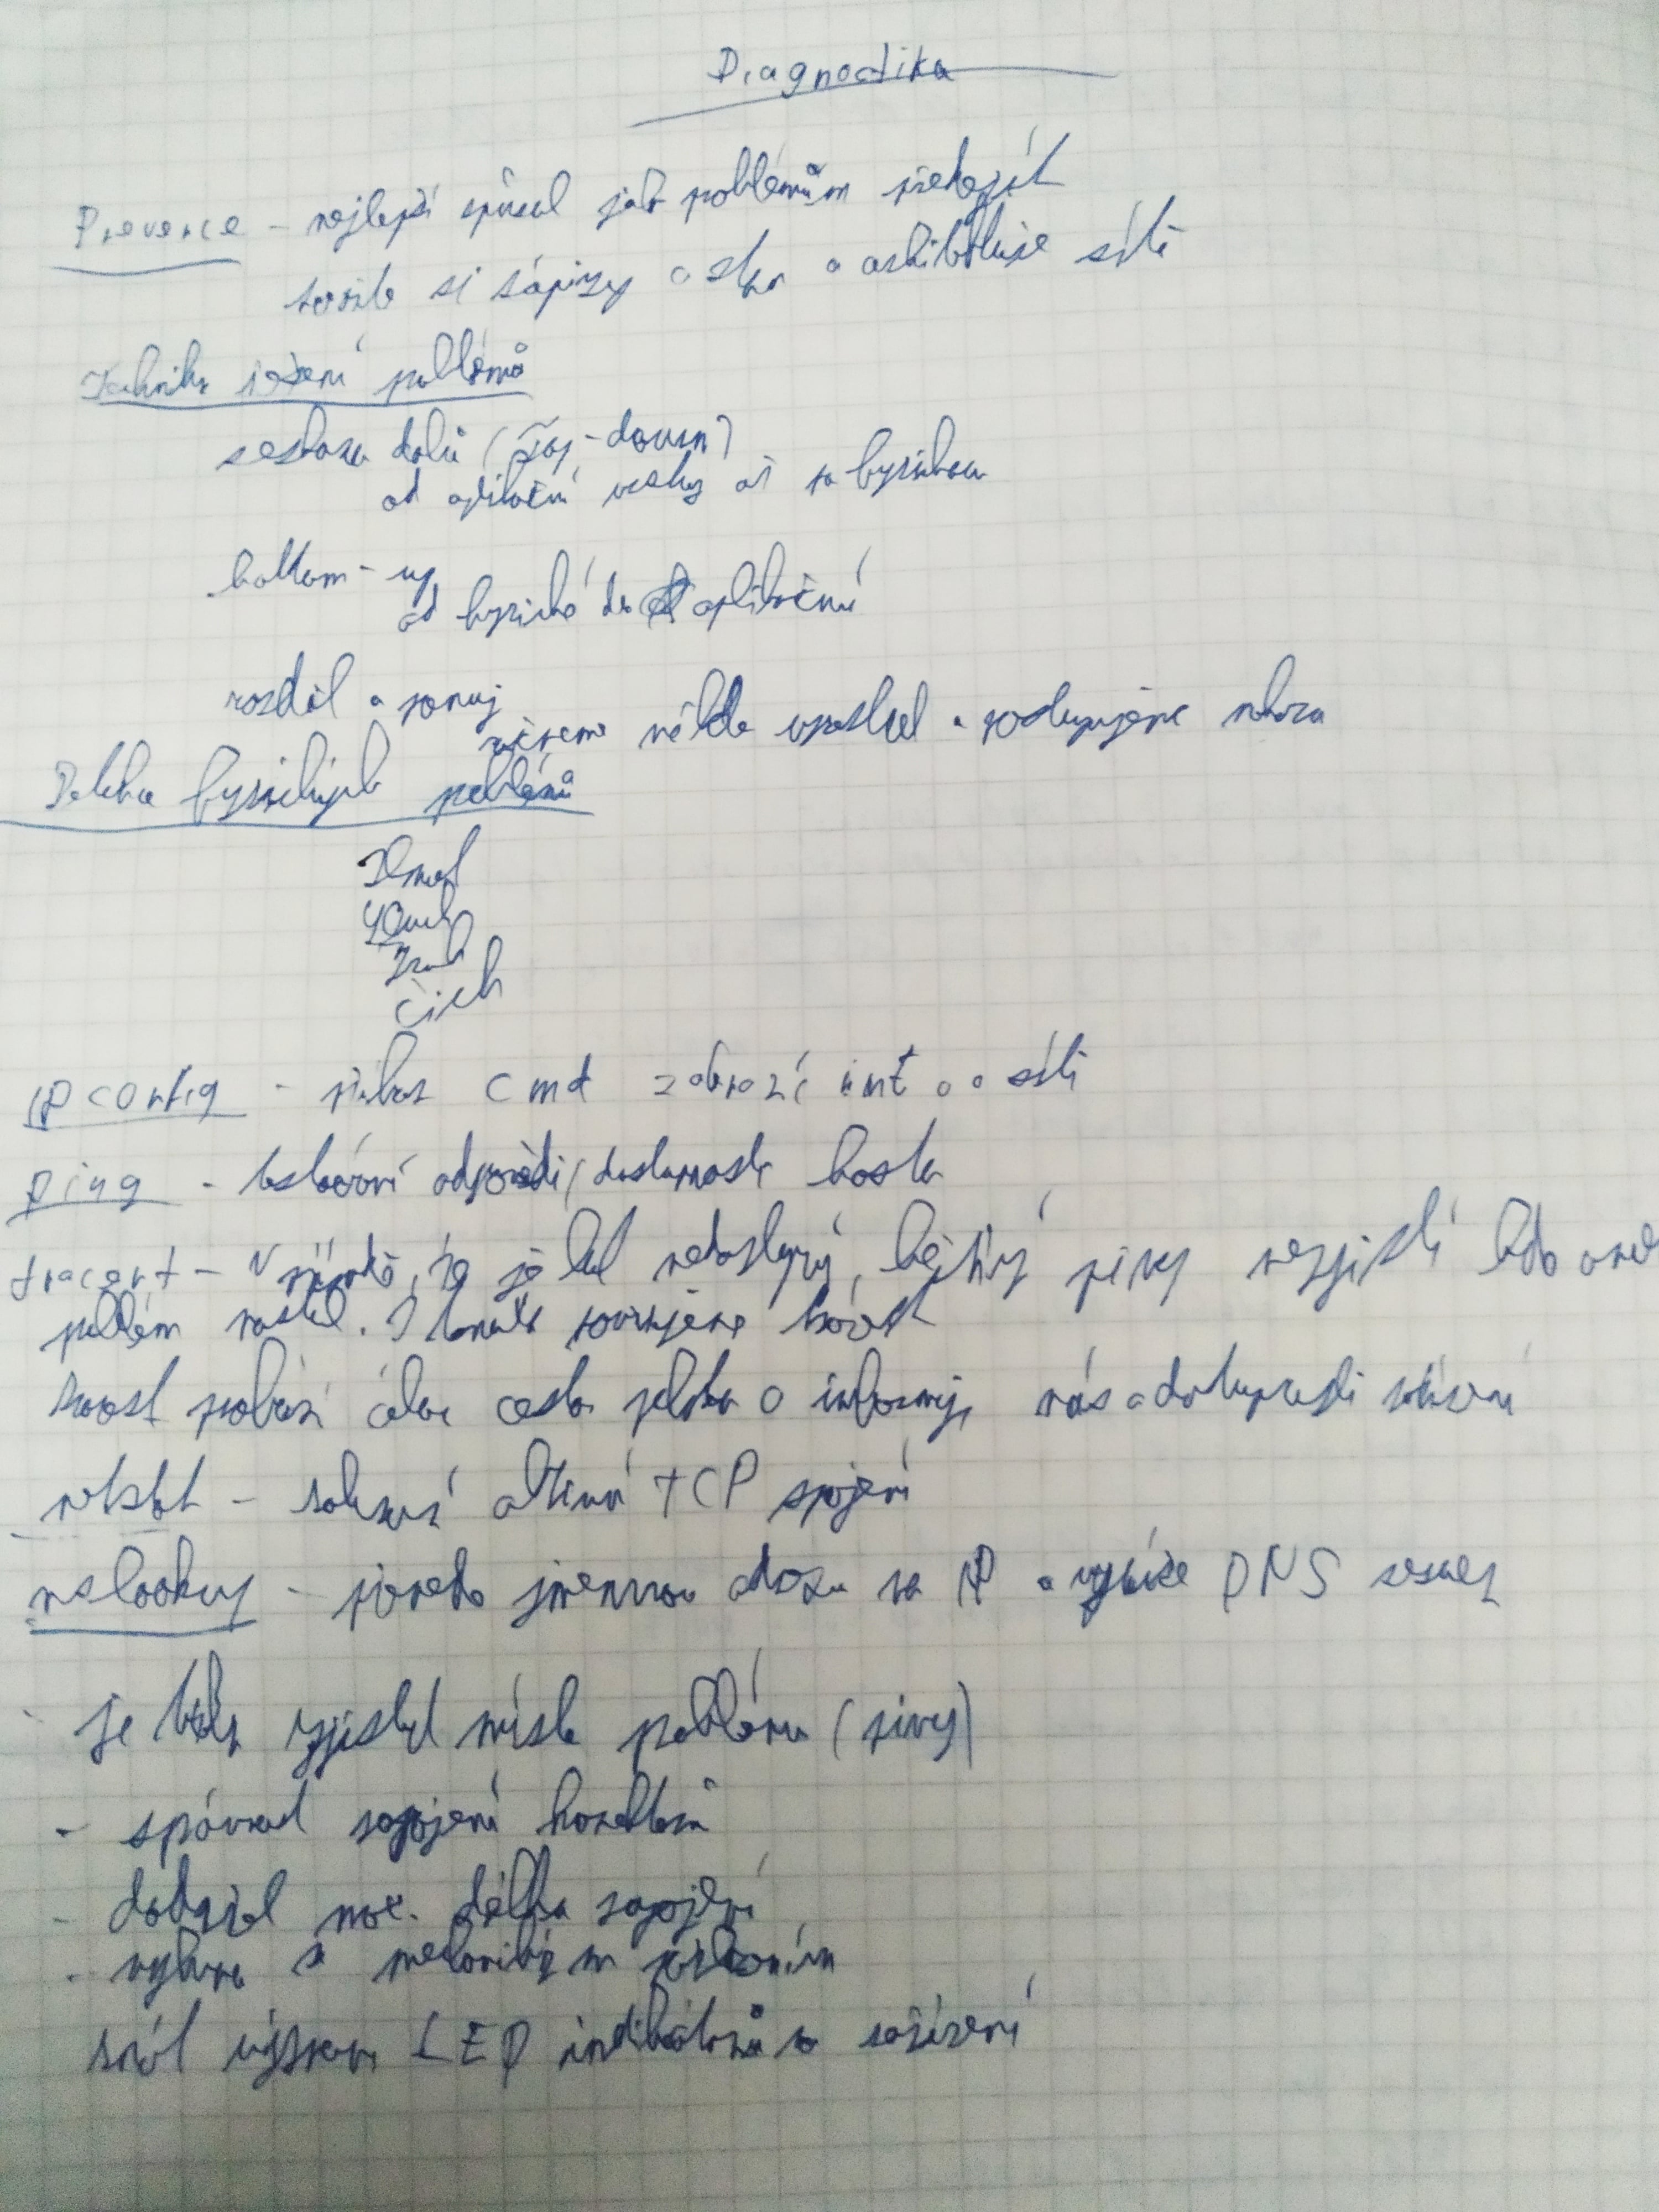 Diagnostika
Prevence - nejlepší způsob jak problémům předejít
tvořte si zápisy o stavu a architektuře sítě
Technika řešení problémů
seshora dolů (Top-down)
od aplikační vrstvy až po fyzickou
bottom-up
od fyzické do aplikační
rozděl a panuj
začneme někde uprostřed a postupujeme nahoru
Detekce fyzických problémů
Hmat
Sluch
Zrak
Čich
IPconfig - příkaz cmd zobrazí info o síti
Ping - testování odpovědi/dostupnosti hosta
tracert - V případě, že je cíl nedostupný, běžný ping nezjistí kdo
problém nastal. používáme tracert
tracert prohází celou cestu paketu a informuje nás o dostupnosti zařízení
netstat - zobrazí aktivní TCP spojení
nslookup - převede jmennou adresu na IP a vypíše DNS server
- je třeba zjistit místo problému (ping)
- správné zapojení konektorů
- dodržet max. délku zapojení
- vyhnout se mechanickým poškozením
znát význam LED indikátorů na zařízení